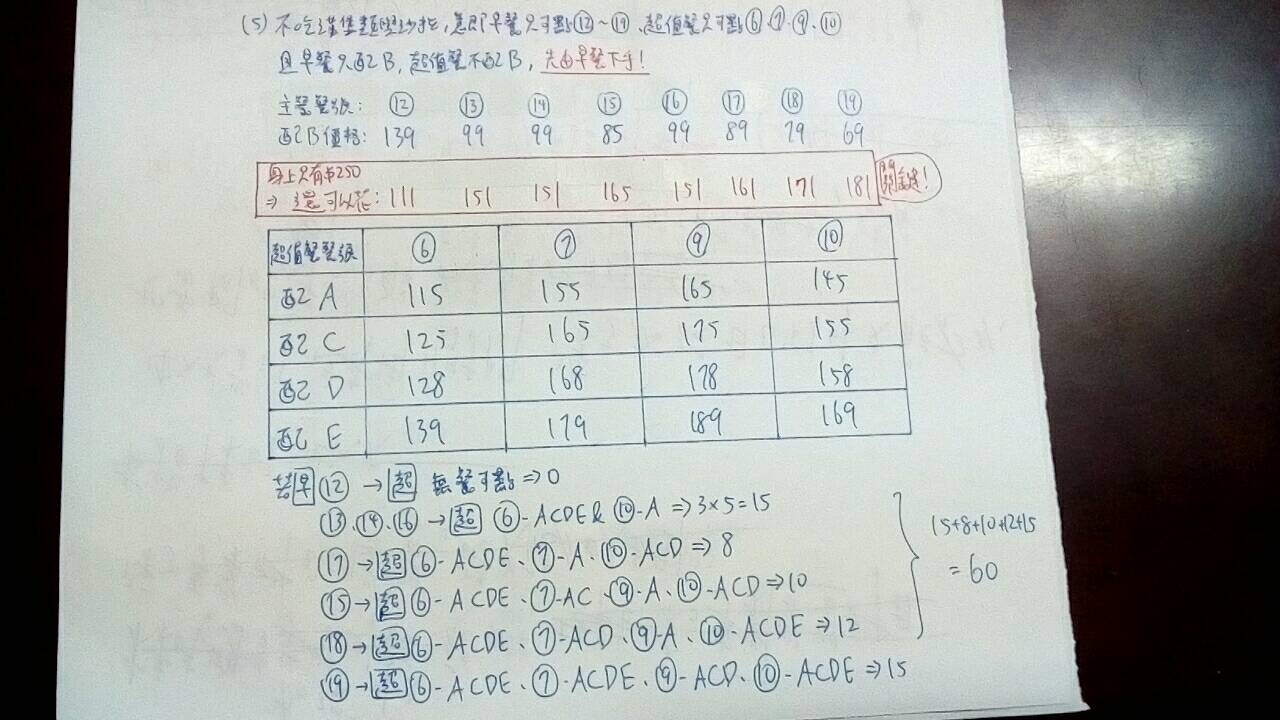 (5) 不吃漢堡類與沙拉,意即早餐只可點⑫~⑲、超值餐只可點⑥、⑦、⑨、⑩
且早餐只配B,超值餐不配B,先由早餐下手!
主餐餐號: ⑫ ⑬ ⑭ ⑮ ⑯ ⑰ ⑱ ⑲
配B價格: 139 99 99 85 99 89 79 69
身上只有$250
⇒ 還可以花: 111 151 151 165 151 161 171 181 關鍵!
超值餐餐號 ⑥ ⑦ ⑨ ⑩
配A 115 155 165 145
配C 125 165 175 155
配D 128 168 178 158
配E 139 179 189 169
若早⑫ → 超 無餐可點 ⇒ 0
⑬、⑭、⑯ → 超 ⑥-ACDE & ⑩-A ⇒ 3×5=15
⑰ → 超 ⑥-ACDE、⑦-A、⑩-ACD ⇒ 8
⑮ → 超 ⑥-ACDE、⑦-AC、⑨-A、⑩-ACD ⇒ 10
⑱ → 超 ⑥-ACDE、⑦-ACD、⑨-A、⑩-ACDE ⇒ 12
⑲ → 超 ⑥-ACDE、⑦-ACDE、⑨-ACD、⑩-ACDE ⇒ 15
15+8+10+12+15
=60